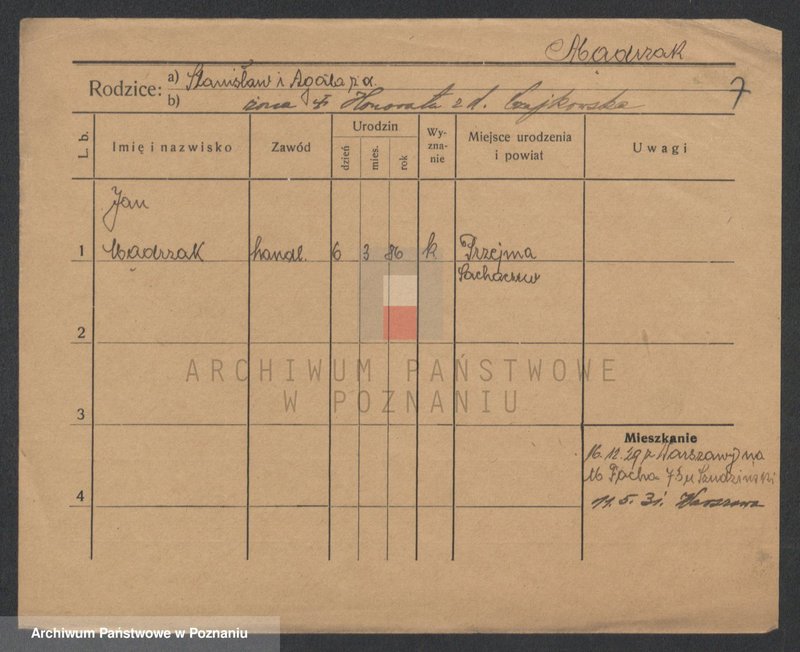 Madrzak
Rodzice: a) Stanisław i Agata z d.
b) żona Honorata z d. Czajkowska
7
L. b.
Imię i nazwisko
Zawód
Urodzin
dzień
mies.
rok
Wy-
zna-
nie
Miejsce urodzenia
i powiat
Uwagi
Jan
1 Madrzak handl. 6 3 86 k
Sochaczew
2
3
4
Mieszkanie
16.12.29 z Warszawy na
Focha 73
11.5.31. Warszawa
ARCHIWUM PAŃSTWOWE
W POZNANIU
Archiwum Państwowe w Poznaniu